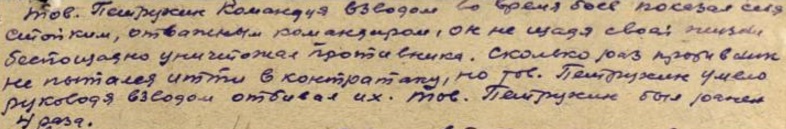 Тов. Петрухин командуя взводом во время боев показал себя
стойким, отважным командиром, он не щадя своей жизни
беспощадно уничтожал противника. Сколько раз противник
не пытался итти в контратаку, но тов. Петрухин умело
руководя взводом отбивал их. Тов. Петрухин был ранен
4 раза.